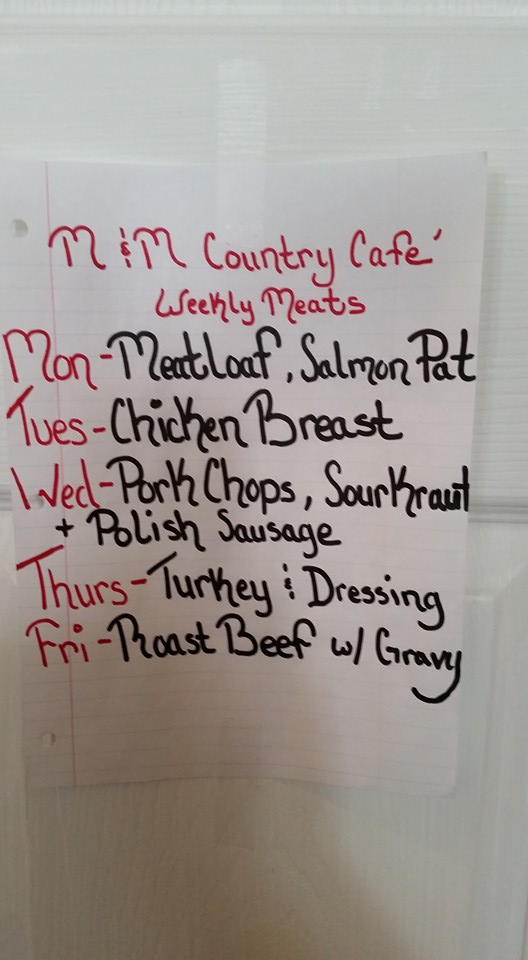 M & M Country Cafe'
Weekly Meats
Mon-MeatLoaf, Salmon Pat
Tues-Chicken Breast
Wed-Pork Chops, Sourkraut
+ Polish Sausage
Thurs-Turkey & Dressing
Fri-Roast Beef w/ Gravy